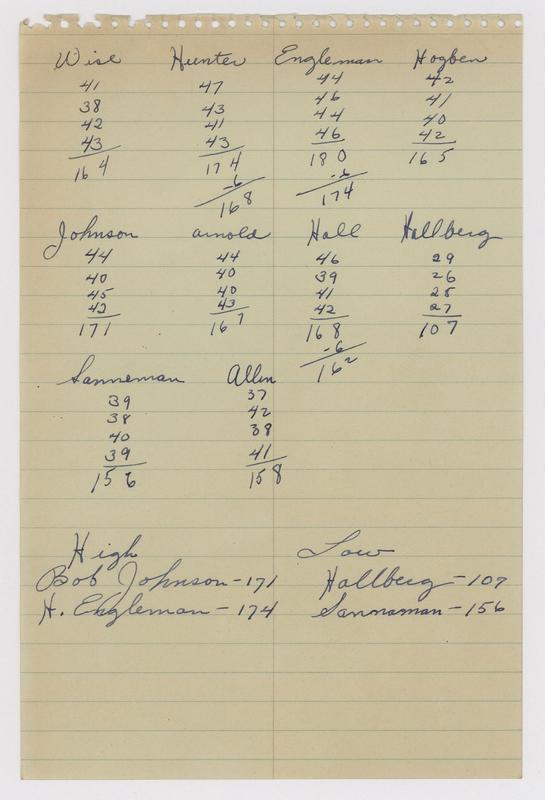 Wise Hunter Engleman Hogben
41 47 44 42
38 43 46 41
42 41 44 40
43 43 46 42
164 174 180 165
-6 -6
168 174
Johnson Arnold Hall Hallberg
44 44 46 29
40 40 39 26
45 40 41 25
42 43 42 27
171 167 168 107
-6
162
Sanneman Allen
39 37
38 42
40 38
39 41
156 158
High Low
Bob Johnson - 171 Hallberg - 107
H. Engleman - 174 Sannaman - 156